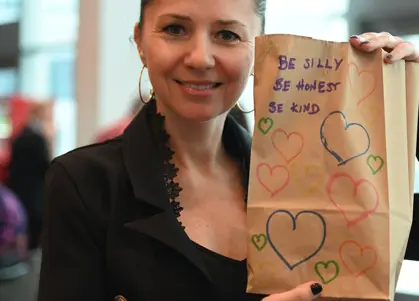 BE SILLY
BE HONEST
BE KIND